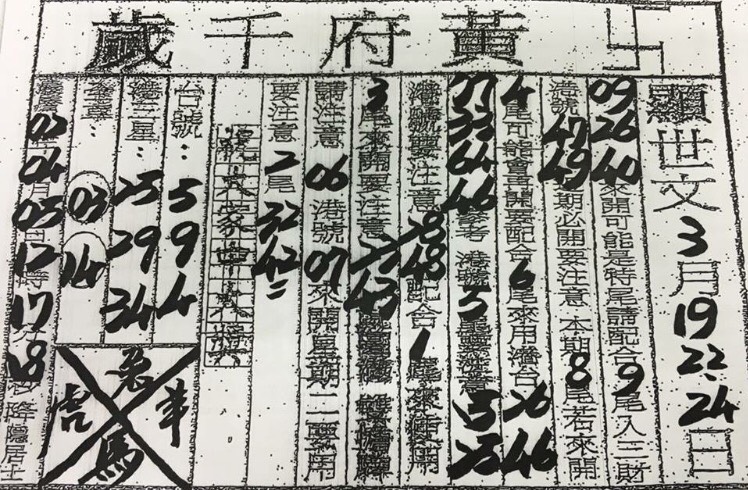 卍黃府千歲
顯世文3月19 22、24日
09 26 40來開可能是特尾請配合9尾入三財
港號47 49期必開要注意本期8尾若來開
4尾可能會開要配合6尾來用 26 46
07 33 64 46參考港號5尾要注意 5 25
港號要注意28 48配合1尾來使用
3尾來開要注意23 43
請注意06港號07來開星期二要用
要注意2尾32 42
祝大家中大獎
台號：5 9 4
港三星：25 29 34
03 14
02 04 05 12 17 18 降隱居士
羊
虎
馬